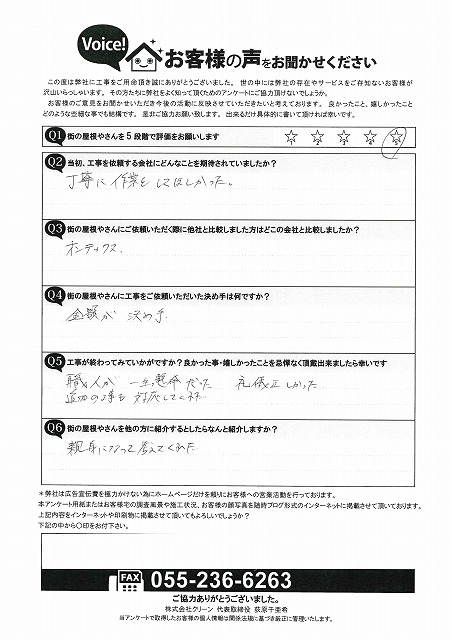 Voice!
お客様の声をお聞かせください
この度は弊社に工事をご用命頂き誠にありがとうございました。 世の中には弊社の存在やサービスをご存知ないお客様が
沢山いらっしゃいます。 その方たちに弊社をよく知って頂くためのアンケートにご協力頂けないでしょうか。
お客様のご意見をお聞かせいただき今後の活動に反映させていただきたいと考えております。 良かったこと、嬉しかったこと
どのような些細な事でも結構です。 是非ご協力お願い致します。 出来るだけ具体的に書いて頂ければ幸いです。
Q1 街の屋根やさんを5段階で評価をお願いします ☆ ☆ ☆ ☆ ☆
Q2 当初、工事を依頼する会社にどんなことを期待されていましたか?
丁寧に作業をしてほしかった。
Q3 街の屋根やさんにご依頼いただく際に他社と比較しました方はどこの会社と比較しましたか?
オンテックス
Q4 街の屋根やさんに工事をご依頼いただいた決め手は何ですか?
金額が 決め手
Q5 工事が終わってみていかがですか?良かった事・嬉しかったことを忌憚なく頂戴出来ましたら幸いです
職人が 一生懸命だった 礼儀正しかった
追加の事も対応してくれた
Q6 街の屋根やさんを他の方に紹介するとしたらなんと紹介しますか?
親身になって答えてくれた
*弊社は広告宣伝費を極力かけない為にホームページだけを頼りにお客様への営業活動を行っております。
本アンケート用紙またはお客様宅の調査風景や施工状況、お客様の顔写真を随時ブログ形式のインターネットに掲載させて頂いております。
上記内容をインターネットや印刷物に掲載させて頂いてもよろしいでしょうか?
下記の中から○印をお付下さい。
FAX 055-236-6263
ご協力ありがとうございました。
株式会社グリーン 代表取締役 荻原千亜希
当アンケートで取得したお客様の個人情報は関係法規に基づき厳正に管理いたします。